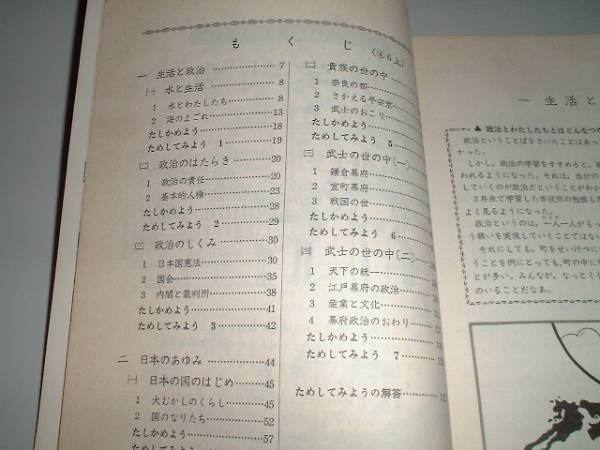 もくじ
(④6上)
一 生活と政治…………7
㈠ 水と生活…………8
1 水とわたしたち…………8
2 海のよごれ…………13
たしかめよう…………18
ためしてみよう 1…………19
㈡ 政治のはたらき…………20
1 政治の責任…………20
2 基本的人権…………23
たしかめよう…………28
ためしてみよう 2…………29
㈢ 政治のしくみ…………30
1 日本国憲法…………30
2 国会…………35
3 内閣と裁判所…………38
たしかめよう…………41
ためしてみよう 3…………42
二 日本のあゆみ…………44
㈠ 日本の国のはじめ…………45
1 大むかしのくらし…………45
2 国のなりたち…………52
たしかめよう…………57
㈡ 貴族の世の中
1 奈良の都
2 さかえる平安京
3 武士のおこり
たしかめよう
ためしてみよう 5
㈢ 武士の世の中(一)
1 鎌倉幕府
2 室町幕府
3 戦国の世
たしかめよう
ためしてみよう 6
㈣ 武士の世の中(二)
1 天下の統一
2 江戸幕府の政治
3 産業と文化
4 幕府政治のおわり
たしかめよう
ためしてみよう 7
ためしてみようの解答
一 生活と
♣ 政治とわたしたちとはどんなつ
政治ということばをきいたことはあっ
かった。
しかし、政治の学習をすすめると、
われるようになった。それは、自分の
していくのが政治だということがわか
3年生で学習した市役所の勉強も
よく見るようになった。
政治というのは、一人一人がもっ
う願いを実現していくことではな
それにしても、町をせいけつに
うことを例にとっても、町の中に
とが多い。みんなが、なっとく
のいることだなあ。